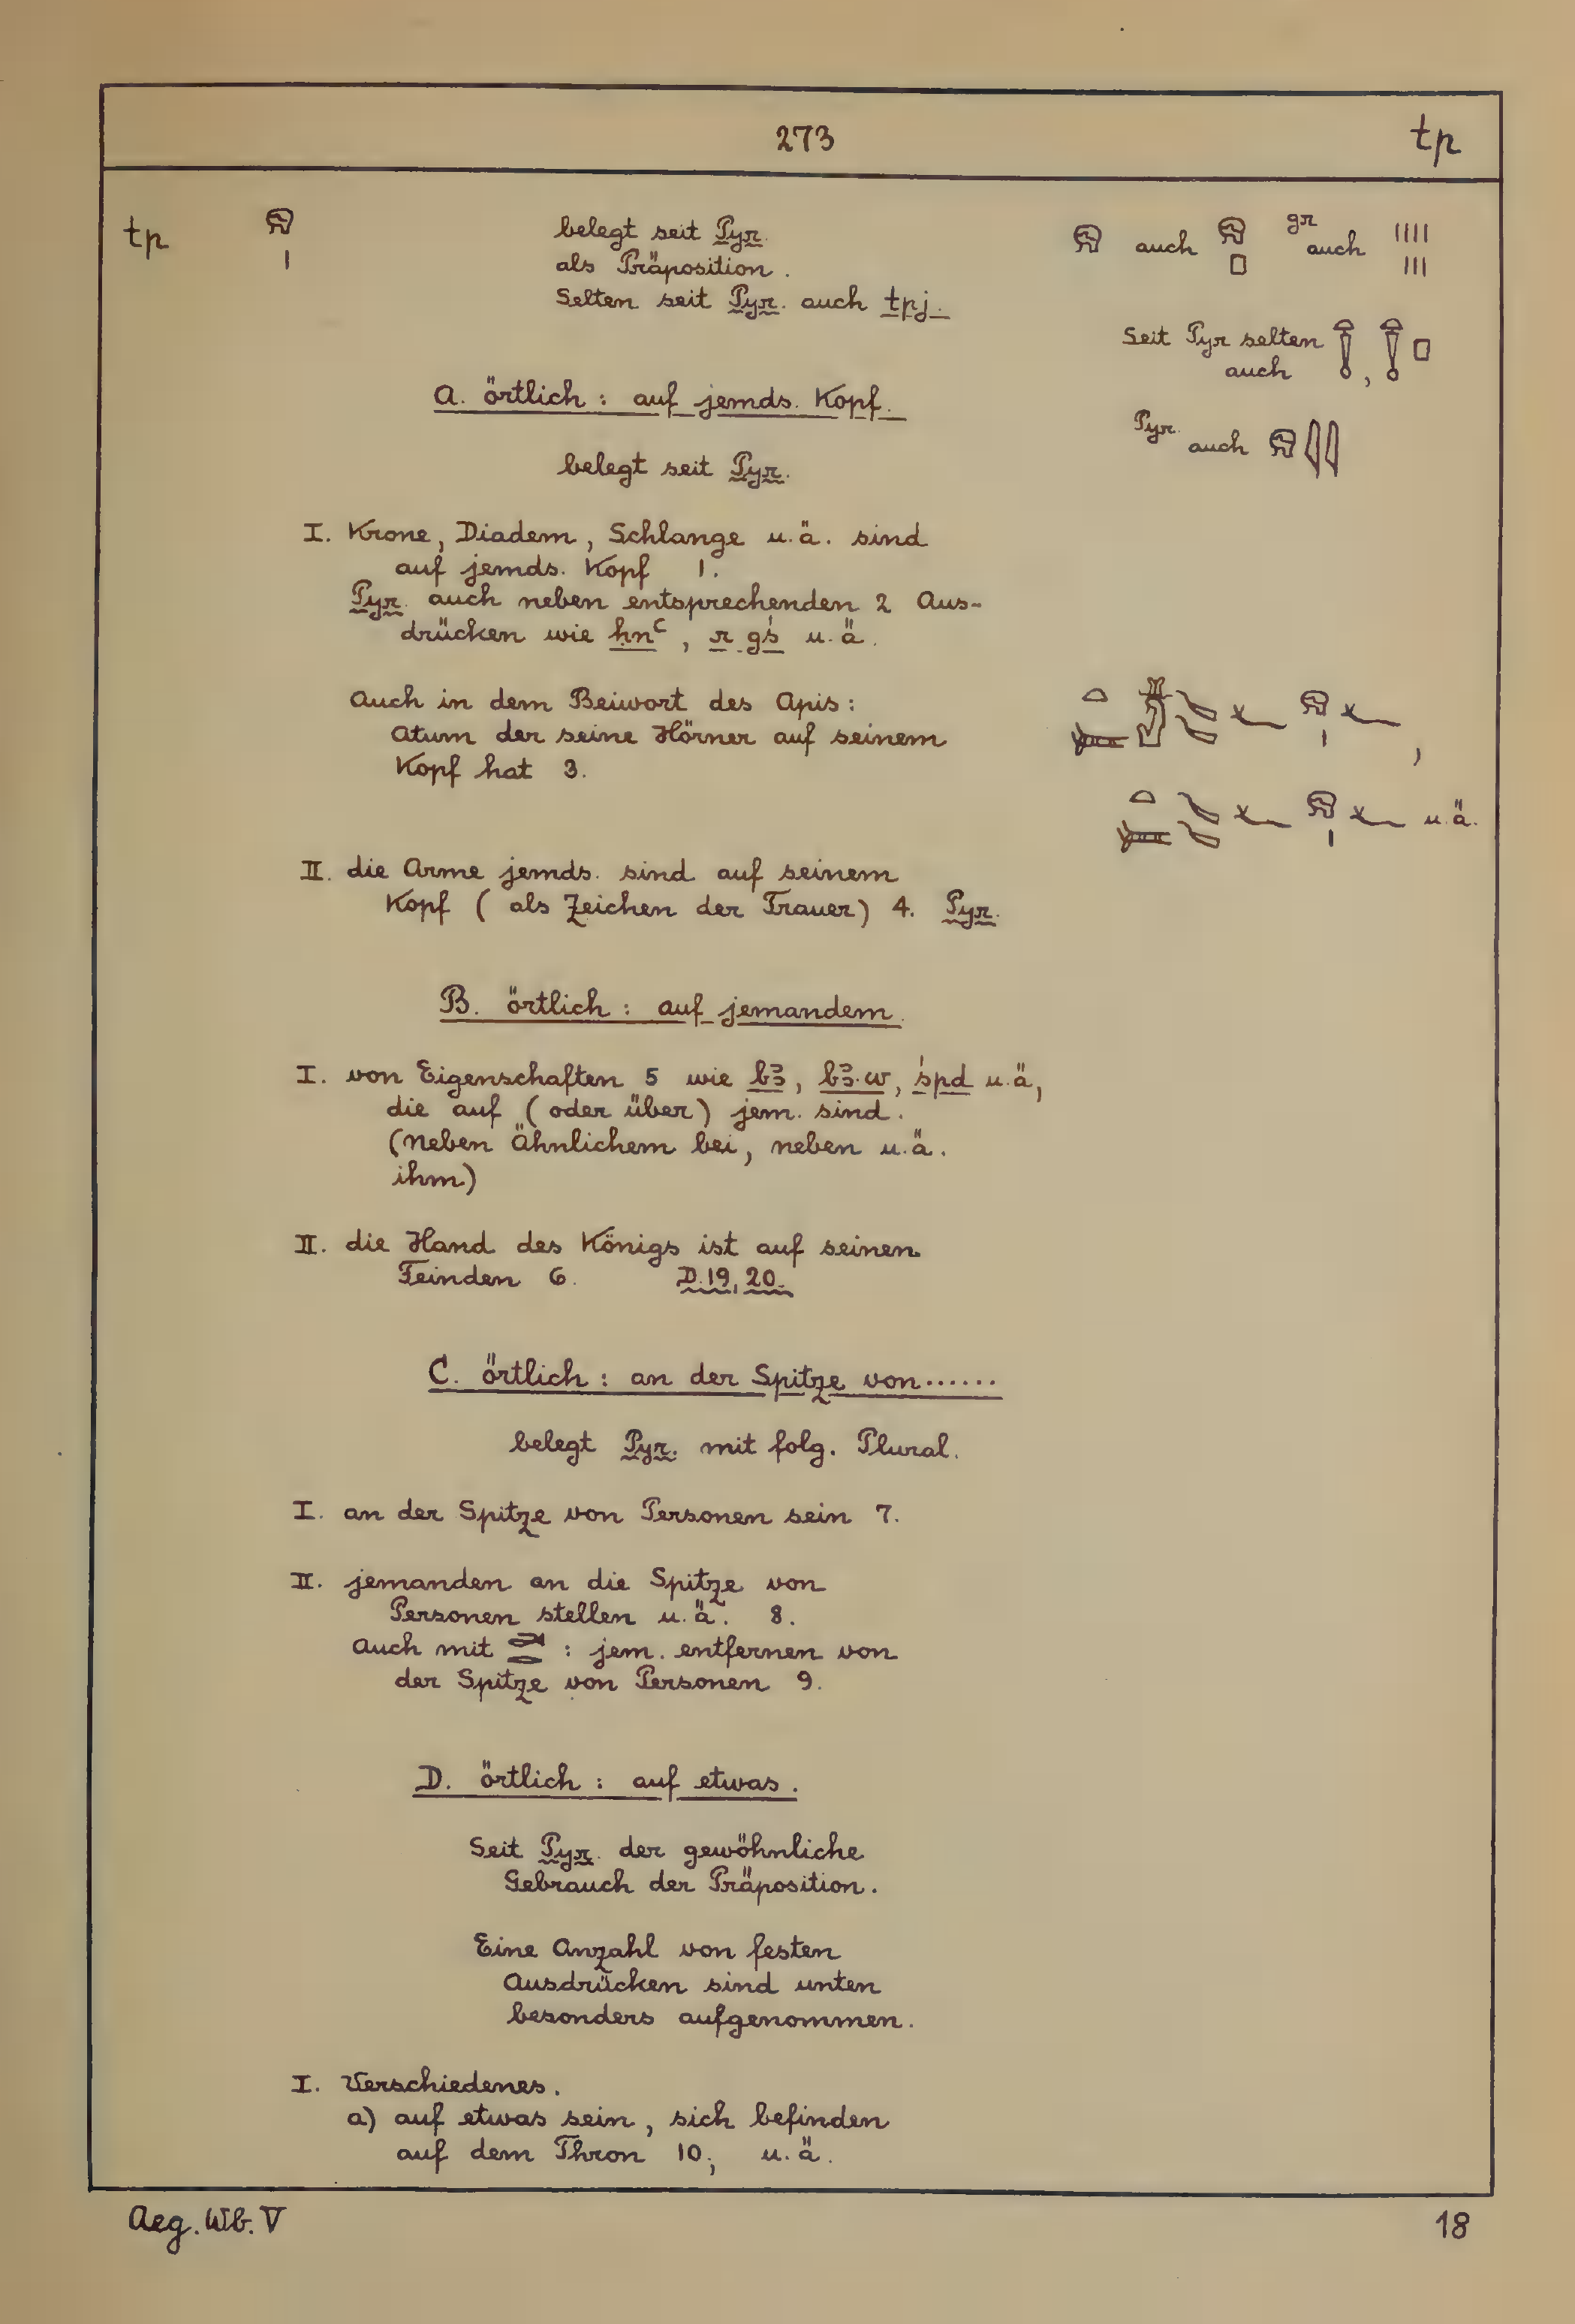 273 tp
tp 𓁶𓏤 belegt seit Pyr. 𓁶 auch 𓁶𓊪 gr auch 𓏺𓏺𓏺𓏺𓏺𓏺𓏺
als Präposition.
Selten seit Pyr. auch tpj.
Seit Pyr selten auch 𓌂, 𓌂𓊪
A. örtlich : auf jemds. Kopf.
Pyr. auch 𓁶𓇌
belegt seit Pyr.
I. Krone, Diadem, Schlange u.ä. sind
auf jemds. Kopf 1.
Pyr. auch neben entsprechenden 2 Aus-
drücken wie ḥnꜥ, r gś u.ä.
Auch in dem Beiwort des Apis:
Atum der seine Hörner auf seinem
Kopf hat 3.
u.ä.
II. die Arme jemds. sind auf seinem
Kopf ( als Zeichen der Trauer) 4. Pyr.
B. örtlich : auf jemandem.
I. von Eigenschaften 5 wie bꜣ, bꜣ.w, śpd u.ä,
die auf ( oder über ) jem. sind.
(neben Ähnlichem bei, neben u.ä.
ihm)
II. die Hand des Königs ist auf seinen
Feinden 6. D.19, 20.
C. örtlich : an der Spitze von......
belegt Pyr. mit folg. Plural.
I. an der Spitze von Personen sein 7.
II. jemanden an die Spitze von
Personen stellen u.ä. 8.
Auch mit 𓅓𓂋 : jem. entfernen von
der Spitze von Personen 9.
D. örtlich : auf etwas.
Seit Pyr. der gewöhnliche
Gebrauch der Präposition.
Eine Anzahl von festen
Ausdrücken sind unten
besonders aufgenommen.
I. Verschiedenes.
a) auf etwas sein, sich befinden
auf dem Thron 10; u.ä.
Aeg. Wb. V 18